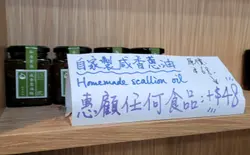 自家製咸香蔥油
Homemade scallion oil
惠顧任何食品:+$48